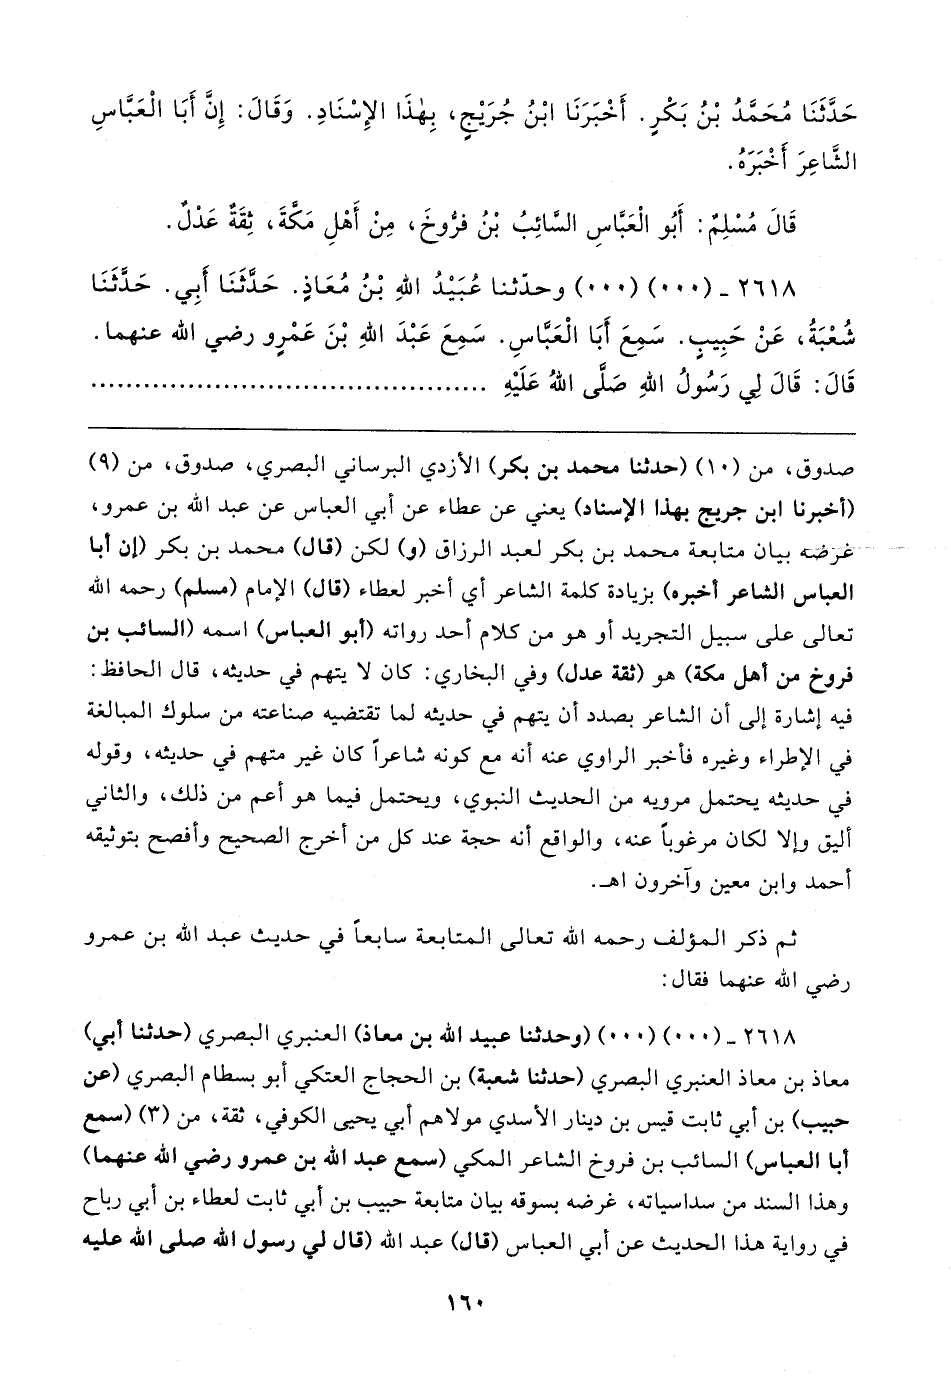 حَدَّثَنَا مُحَمَّدُ بْنُ بَكْرٍ. أَخْبَرَنَا ابْنُ جُرَيْجٍ، بِهٰذَا الإِسْنَادِ. وَقَالَ: إِنَّ أَبَا الْعَبَّاسِ
الشَّاعِرَ أَخْبَرَهُ.
قَالَ مُسْلِمٌ: أَبُو الْعَبَّاسِ السَّائِبُ بْنُ فَرُّوخَ، مِنْ أَهْلِ مَكَّةَ، ثِقَةٌ عَدْلٌ.
٢٦١٨ ـ (٠٠٠) (٠٠٠) وحدّثنا عُبَيْدُ اللهِ بْنُ مُعَاذٍ. حَدَّثَنَا أَبِي. حَدَّثَنَا
شُعْبَةُ، عَنْ حَبِيبٍ. سَمِعَ أَبَا الْعَبَّاسِ. سَمِعَ عَبْدَ اللهِ بْنَ عَمْرٍو رضي الله عنهما.
قَالَ: قَالَ لِي رَسُولُ اللهِ صَلَّى اللهُ عَلَيْهِ ...........................................
صدوق، من (١٠) (حدثنا محمد بن بكر) الأزدي البرساني البصري، صدوق، من (٩)
(أخبرنا ابن جريج بهذا الإسناد) يعني عن عطاء عن أبي العباس عن عبد الله بن عمرو،
غرضه بيان متابعة محمد بن بكر لعبد الرزاق (و) لكن (قال) محمد بن بكر (إن أبا
العباس الشاعر أخبره) بزيادة كلمة الشاعر أي أخبر لعطاء (قال) الإمام (مسلم) رحمه الله
تعالى على سبيل التجريد أو هو من كلام أحد رواته (أبو العباس) اسمه (السائب بن
فروخ من أهل مكة) هو (ثقة عدل) وفي البخاري: كان لا يتهم في حديثه، قال الحافظ:
فيه إشارة إلى أن الشاعر بصدد أن يتهم في حديثه لما تقتضيه صناعته من سلوك المبالغة
في الإطراء وغيره فأخبر الراوي عنه أنه مع كونه شاعراً كان غير متهم في حديثه، وقوله
في حديثه يحتمل مرويه من الحديث النبوي، ويحتمل فيما هو أعم من ذلك، والثاني
أليق وإلا لكان مرغوباً عنه، والواقع أنه حجة عند كل من أخرج الصحيح وأفصح بتوثيقه
أحمد وابن معين وآخرون اهـ.
ثم ذكر المؤلف رحمه الله تعالى المتابعة سابعاً في حديث عبد الله بن عمرو
رضي الله عنهما فقال:
٢٦١٨ ـ (٠٠٠) (٠٠٠) (وحدثنا عبيد الله بن معاذ) العنبري البصري (حدثنا أبي)
معاذ بن معاذ العنبري البصري (حدثنا شعبة) بن الحجاج العتكي أبو بسطام البصري (عن
حبيب) بن أبي ثابت قيس بن دينار الأسدي مولاهم أبي يحيى الكوفي، ثقة، من (٣) (سمع
أبا العباس) السائب بن فروخ الشاعر المكي (سمع عبد الله بن عمرو رضي الله عنهما)
وهذا السند من سداسياته، غرضه بسوقه بيان متابعة حبيب بن أبي ثابت لعطاء بن أبي رباح
في رواية هذا الحديث عن أبي العباس (قال) عبد الله (قال لي رسول الله صلى الله عليه
١٦٠